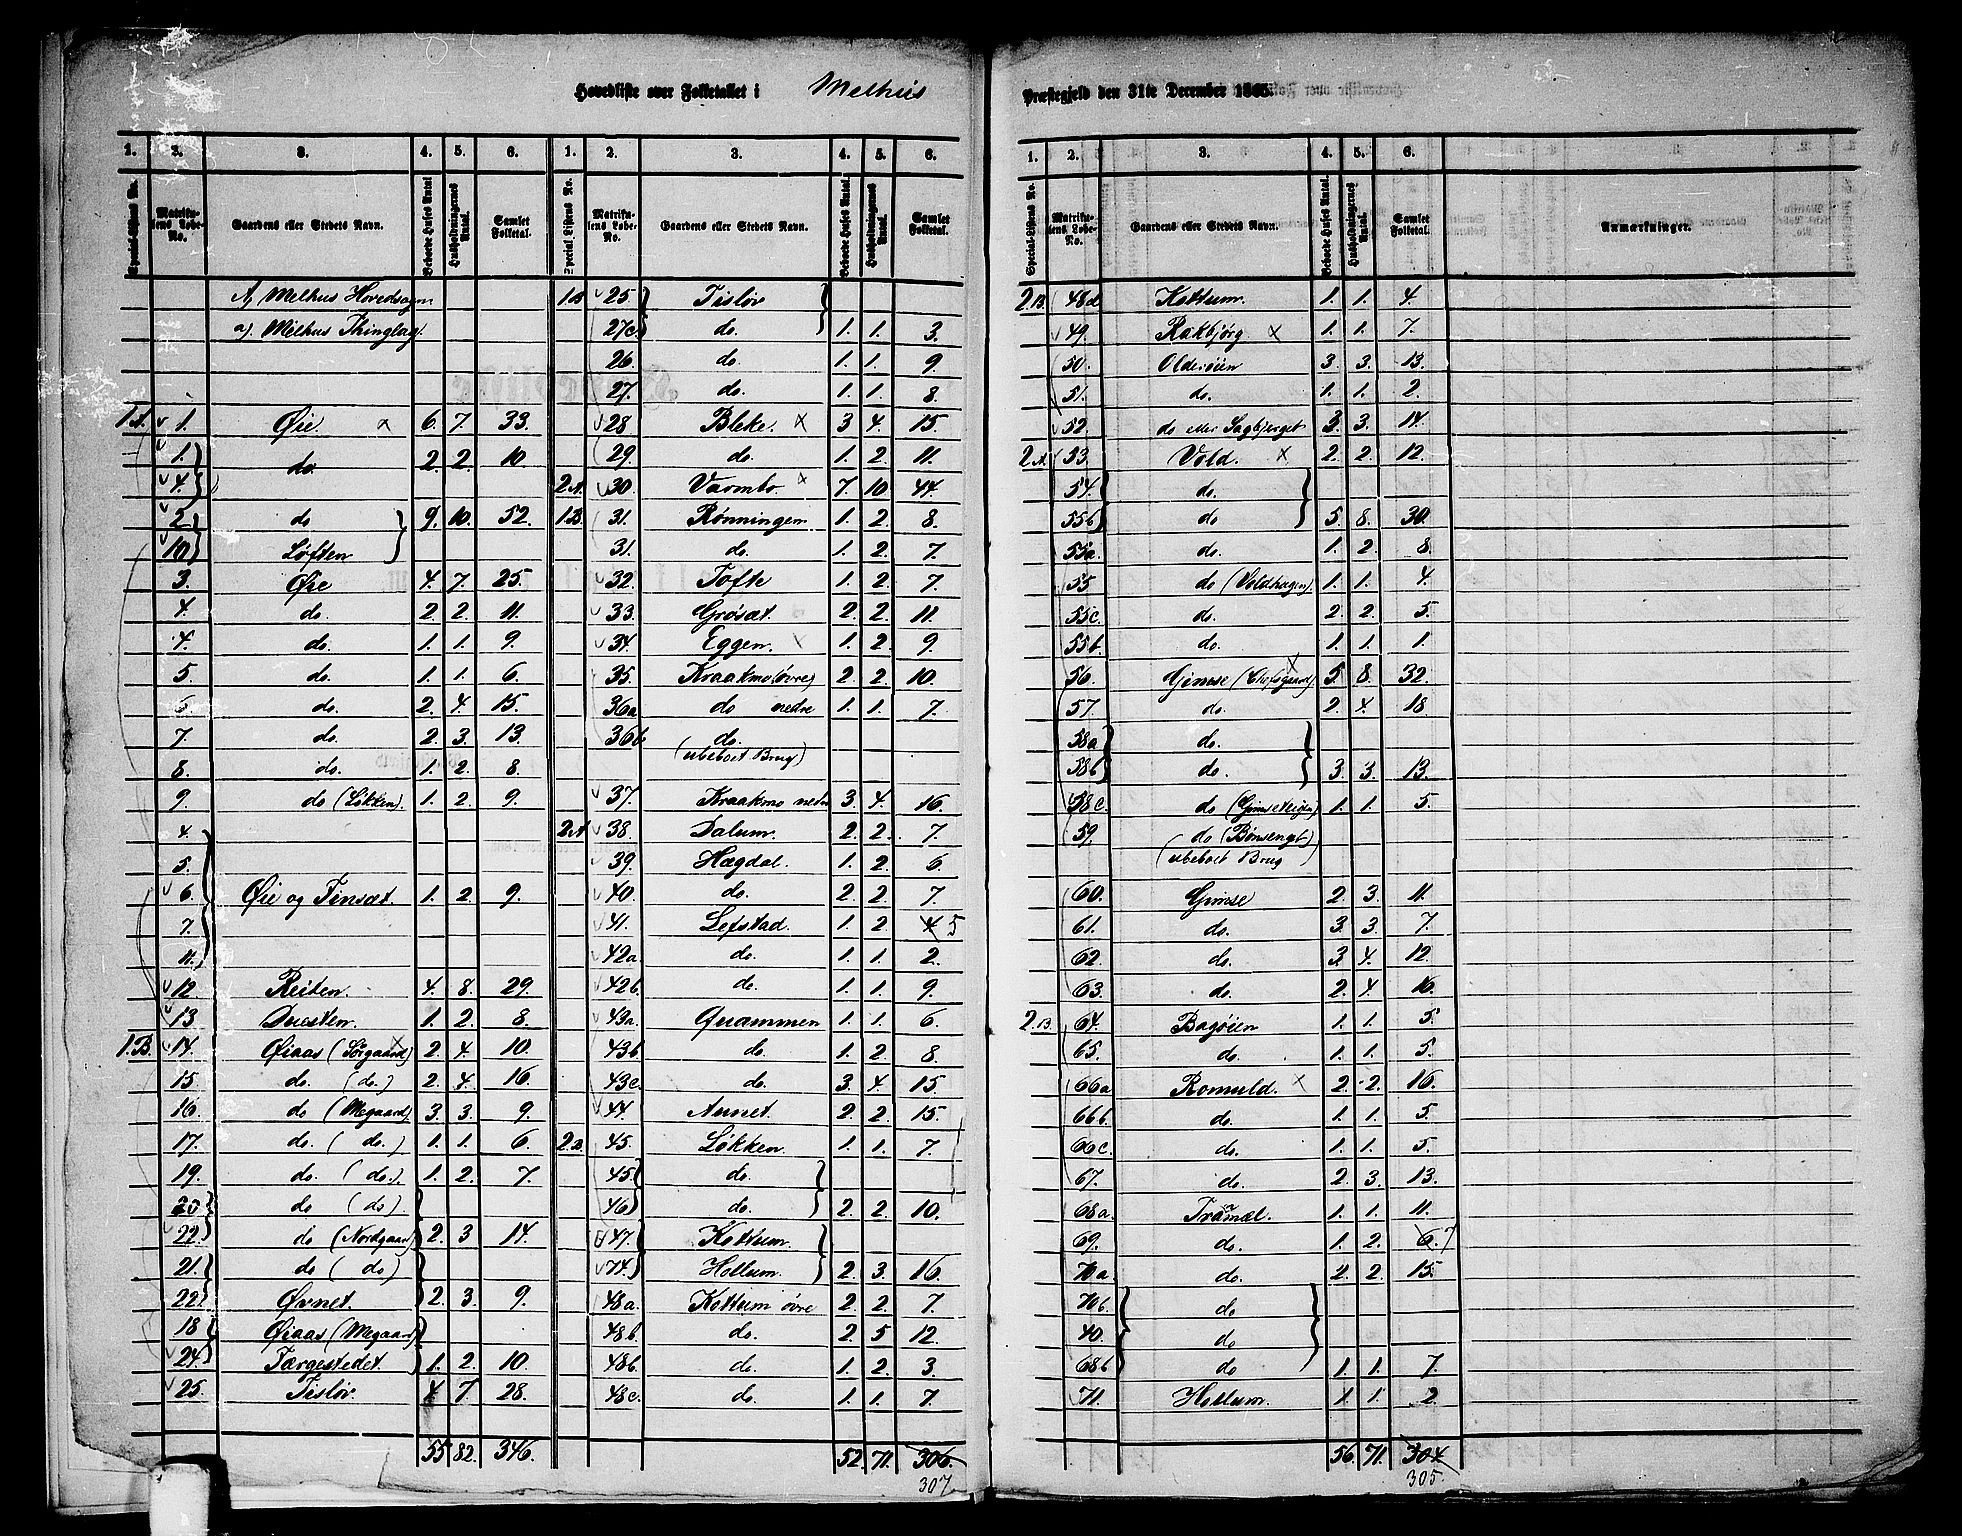 Hovedliste over Folketallet i Melhus Præstegjeld den 31te December 1865.
1. 2. 3. 4. 5. 6. 1. 2. 3. 4. 5. 6.
Special-Listens No. Matrikulens Løbe-No. Gaardens eller Stedets Navn. Beboede Huses Antal Husholdningernes Antal. Samlet Folketal. Special-Listens No. Matrikulens Løbe-No. Gaardens eller Stedets Navn. Beboede Huses Antal. Husholdningernes Antal. Samlet Folketal.
A) Melhus Hovedsogn
a). Melhus Thinglag.
1.A. 1. Øie. x 6. 7. 33.
1. } do. 2. 2. 10.
4. }
2. } do } 9. 10. 52.
10. } Løften }
3. Øie 4. 7. 25.
4. do. 2. 2. 11.
4. do. 1. 1. 9.
5. do. 1. 1. 6.
6. do. 2. 4. 15.
7. do. 2. 3. 13.
8. do. 1. 2. 8.
9. do (Løkken). 1. 2. 9.
4. }
5. }
6. } Øie og Finsæt. 1. 2. 9.
7. }
11. }
12. Reiten. 4. 8. 29.
13. 1. 2. 8.
1.B. 14. Øiaas (Sørgaard) x 2. 4. 10.
15. do. (do.) 2. 4. 16.
16. do (Megaard) 3. 3. 9.
17. do. (do.) 1. 1. 6.
19. do (do.). 1. 2. 7.
23. } do (do). }
22. } do (Nordgaard) 2. 3 14.
21. } do (do) }
22. } Øvnet. } 2. 3. 9.
18 } Øiaas (Megaard) }
24. } Færgestedet. } 1. 2. 10.
25. Tisløv. 4 7. 28.
55. 82. 346.
1B 25 } Tisløv }
27c. } do. } 1. 1. 3.
26. do. 1. 1. 9
27. do. 1. 1. 8.
28 Bleke. x 3 4. 15.
29. do. 1. 2. 11.
2A. 30. Varmbo x 7. 10 44.
1.B. 31. Rønningen 1. 2. 8.
31. do. 1. 2. 7.
32. Tofte 1. 2. 7.
33. Grøsæt. 2. 2. 11.
34. Eggen. x 1. 2. 9
35. Kraakmo (øvre) 2. 2. 10.
36a do nedre 1. 1. 7.
36b do.
(ubeboet Brug)
37. Kraakmo nedre 3. 4. 16.
2A 38. Dalum. 2. 2. 7.
39. Hægdal. 1. 2 6
40. do. 2. 2. 7.
41. Lefstad. 1. 2 4 5
42a do. 1. 1. 2.
42b. do. 1. 1. 9.
43a Quammen 1. 1. 6.
43b do. 1. 2 8.
43c. do. 3. 4. 15.
44. 2. 2. 15.
2.B. 45. Løkken. 1. 1. 7.
45. } do. }
46. } do. } 2. 2. 10.
47. } Kottum. }
74. } Hollum. } 2. 3. 16.
48a Kottum øvre 2. 2. 7.
48b. do. 2 5 12.
48b. do. 1. 2. 3.
48c. do. 1. 1. 7.
52. 71. 306.
307.
1. 2. 3. 4. 5. 6.
Special-Listens No. Matrikulens Løbe-No. Gaardens eller Stedets Navn. Beboede Huses Antal. Husholdningernes Antal. Samlet Folketal. Anmærkninger.
2.B. 48d Kottum. 1. 1. 4.
49. Rakbjørg. x 1. 1. 7.
50. Olderøien 3. 3. 13.
51. do. 1. 1. 2.
52. do eller Sagbjerget 3. 3. 14.
2.A. 53. Vold. x 2. 2. 12.
54. } do. }
55b } do } 5. 8. 30.
55a. do. 1. 2. 8.
55 do (Voldhagen). 1. 1. 4.
55c. do. 2. 2. 5.
55b. do. 1. 1. 1.
56. Gimse (Chefsgaard) x 5 8. 32.
57. do. 2. 4. 18.
58a } do. }
58b } do. } 3. 3. 13.
58c. do (Gimseteigen) 1. 1. 5.
59. do (Bønsenget)
(ubeboet Brug)
60. Gimse 2. 3. 11.
61. do. 3. 3. 7.
62. do. 3. 4. 12.
63. do. 2. 4. 16.
2.B. 64. Bagøien 1. 1. 5.
65. do. 1. 1. 5.
66a Romuld. x 2. 2. 16.
66b. do. 1. 1. 5.
66c do. 1. 1. 5.
67. do. 2. 3. 13.
68a. Tramæl. 1. 1. 11.
69. do. 1. 2. 6. 7
70a. do. 2. 2. 15.
70b. } do }
40. } do }
68b } do } 1. 1. 7.
71. Hollum. 1 1. 2
56. 71. 304
305.